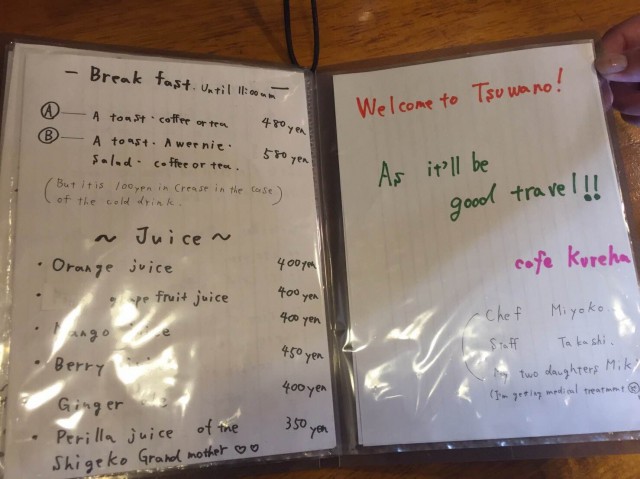 — Break fast. Until 11:00am —
Ⓐ — A toast · coffee or tea 480 yen
Ⓑ — A toast · A weenie ·
Salad · coffee or tea. 580 yen
(But it is 100 yen in crease in the case
of the cold drink.)
~ Juice ~
• Orange juice 400 yen
• fruit juice 400 yen
• Mango juice 400 yen
• Berry 450 yen
Ginger 400 yen
• Perilla juice of the 350 yen
Shigeko Grand mother ♡♡
Welcome to Tsuwano!
As it'll be
good travel!!!
cafe Kureha
Chef Miyoko.
Staff Takashi.
two daughters Mik
(I'm getting medical treatment